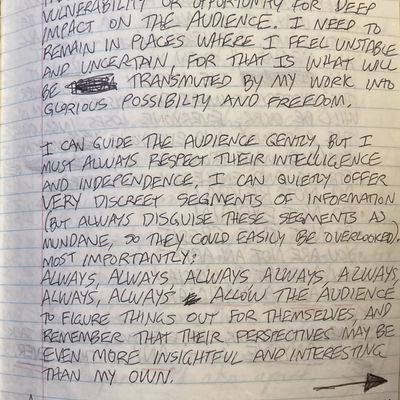 VULNERABILITY OR OPPORTUNITY FOR DEEP
IMPACT ON THE AUDIENCE. I NEED TO
REMAIN IN PLACES WHERE I FEEL UNSTABLE
AND UNCERTAIN, FOR THAT IS WHAT WILL
BE TRANSMUTED BY MY WORK INTO
GLORIOUS POSSIBILTY AND FREEDOM.
I CAN GUIDE THE AUDIENCE GENTLY, BUT I
MUST ALWAYS RESPECT THEIR INTELLIGENCE
AND INDEPENDENCE. I CAN QUIETLY OFFER
VERY DISCREET SEGMENTS OF INFORMATION
(BUT ALWAYS DISGUISE THESE SEGMENTS AS
MUNDANE, SO THEY COULD EASILY BE OVERLOOKED).
MOST IMPORTANTLY:
ALWAYS, ALWAYS, ALWAYS, ALWAYS, ALWAYS,
ALWAYS, ALWAYS ALLOW THE AUDIENCE
TO FIGURE THINGS OUT FOR THEMSELVES, AND
REMEMBER THAT THEIR PERSPECTIVES MAY BE
EVEN MORE INSIGHTFUL AND INTERESTING
THAN MY OWN.